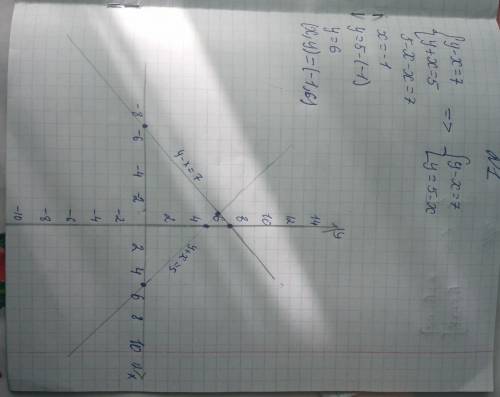 №1
{ y-x=7
y+x=5 => { y-x=7
y=5-x
5-x-x=7
x=-1
y=5-(-1)
y=6
(x,y)=(-1,6)
y
14
12
10
8
6
4
2
-2
-4
-6
-8
-10
-8 -6 -4 -2 2 4 6 8 10 x
y-x=7
y+x=5